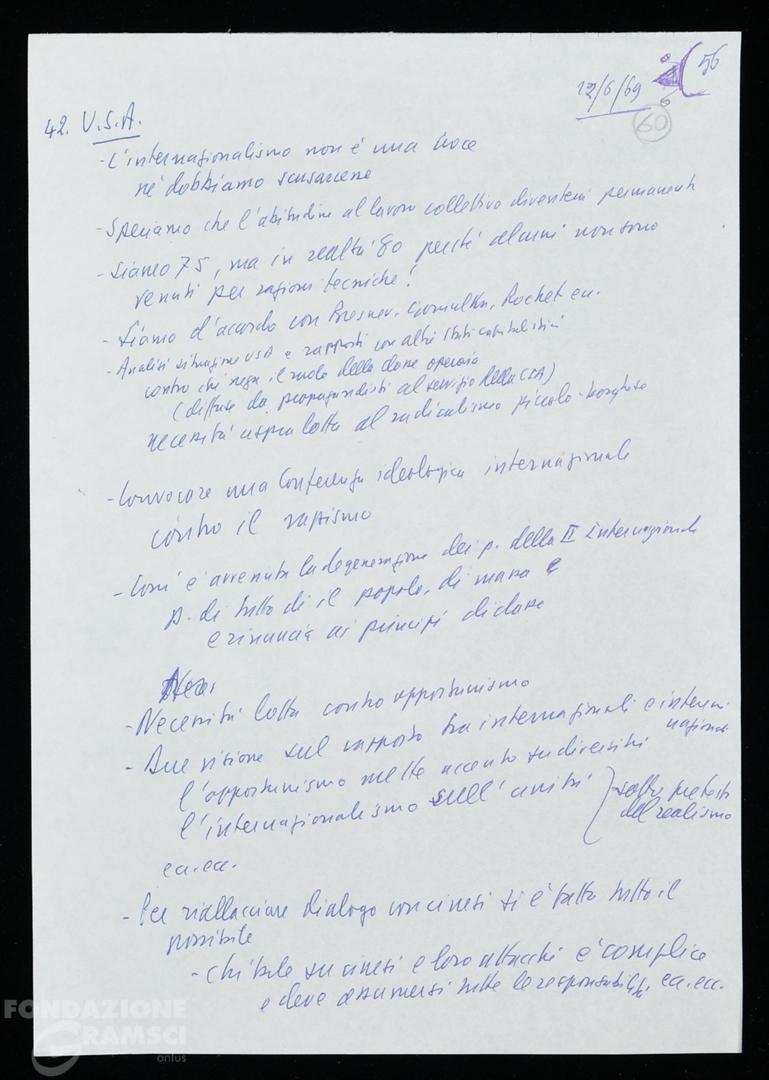 12/6/69
56
60
42. U.S.A.
- L'internazionalismo non è una voce
né dobbiamo scusarcene
- Speriamo che l'abitudine al lavoro collettivo diventerà permanente
- Siamo 75, ma in realtà 80 perché alcuni non sono
venuti per ragioni tecniche!
- Siamo d'accordo con Bresnev, Gomulka, Rochet ecc.
- Analisi situazione USA e rapporti con altri Stati capitalistici
contro chi nega il ruolo della classe operaia
(diffuse da propagandisti al servizio della CIA)
necessità aspra lotta al radicalismo piccolo-borghese
- Convocare una Conferenza ideologica internazionale
contro il razzismo
- Com'è avvenuta la degenerazione dei p. della II Internazionale
p. di tutto il popolo, di massa e
e rinuncia ai principi di classe
- Necessità lotta contro opportunismo
- Due visione sul rapporto tra internazionali e interessi nazionali
l'opportunismo mette accento su diversità
l'internazionalismo sull'unità
sotto pretesto
del realismo
ecc. ecc.
- Per riallacciare dialogo con cinesi si è fatto tutto il
possibile
- Chi tace su cinesi e loro attacchi è complice
e deve assumersi tutte le responsabilità, ecc. ecc.
FONDAZIONE
GRAMSCI
onlus